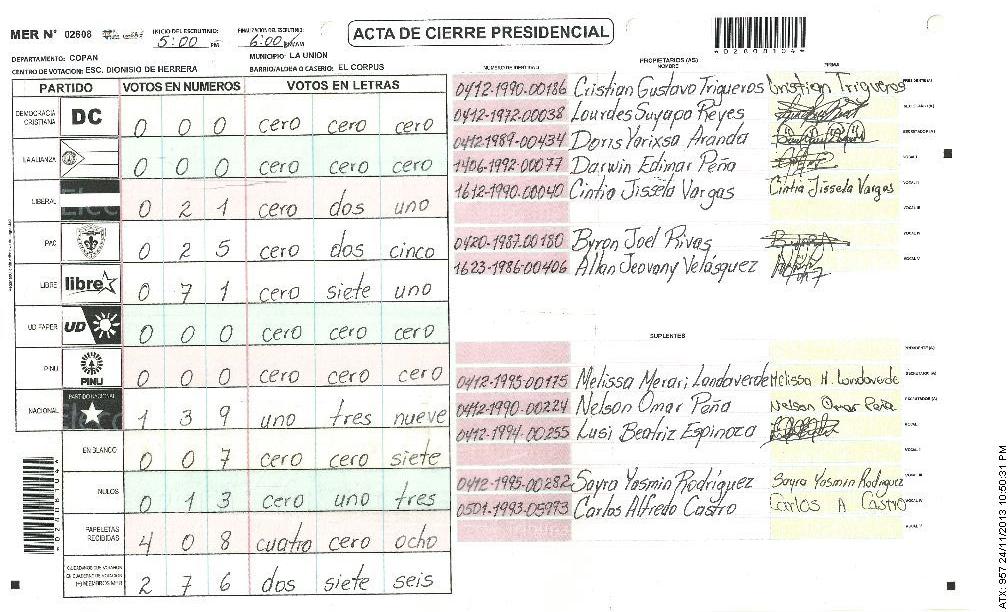 MER N° 02608 INICIO DEL ESCRUTINIO: 5:00 PM FINALIZACION DEL ESCRUTINIO: 6:00 PM/AM
ACTA DE CIERRE PRESIDENCIAL
DEPARTAMENTO: COPAN MUNICIPIO: LA UNION
CENTRO DE VOTACION: ESC. DIONISIO DE HERRERA BARRIO/ALDEA O CASERIO: EL CORPUS
PARTIDO VOTOS EN NUMEROS VOTOS EN LETRAS
DEMOCRACIA CRISTIANA DC 0 0 0 cero cero cero
LA ALIANZA 0 0 0 cero cero cero
LIBERAL 0 2 1 cero dos uno
PAC 0 2 5 cero dos cinco
LIBRE libre 0 7 1 cero siete uno
UD FAPER UD 0 0 0 cero cero cero
PINU PINU 0 0 0 cero cero cero
NACIONAL PARTIDO NACIONAL 1 3 9 uno tres nueve
EN BLANCO 0 0 7 cero cero siete
NULOS 0 1 3 cero uno tres
PAPELETAS RECIBIDAS 4 0 8 cuatro cero ocho
CIUDADANOS QUE VOTARON EN CUADERNO DE VOTACION 2 7 6 dos siete seis
NUMERO DE IDENTIDAD PROPIETARIOS (AS) NOMBRE FIRMA
0412-1990-00186 Cristian Gustavo Trigueros Cristian Trigueros PRESIDENTE(A)
0412-1972-00038 Lourdes Suyapa Reyes SECRETARIO(A)
0412-1989-00434 Doris Yorixsa Aranda ESCRUTADOR(A)
1406-1992-00077 Darwin Edimar Peña VOCAL I
1612-1990-00040 Cintia Jissela Vargas Cintia Jissela Vargas VOCAL II
VOCAL III
0420-1987-00180 Byron Joel Rivas VOCAL IV
1623-1986-00406 Allan Jeovany Velásquez VOCAL V
SUPLENTES
PRESIDENTE(A)
0412-1995-00175 Melissa Merari Londaverde Melissa M. Londaverde SECRETARIO(A)
0412-1990-00224 Nelson Omar Peña Nelson Omar Peña ESCRUTADOR(A)
0412-1994-00255 Lusi Beatriz Espinoza VOCAL I
VOCAL II
0412-1995-00282 Sayra Yasmin Rodríguez Sayra Yasmin Rodriguez VOCAL III
0501-1993-05993 Carlos Alfredo Castro Carlos A Castro VOCAL IV
VOCAL V
ATX: 957 24/11/2013 10:50:31 PM